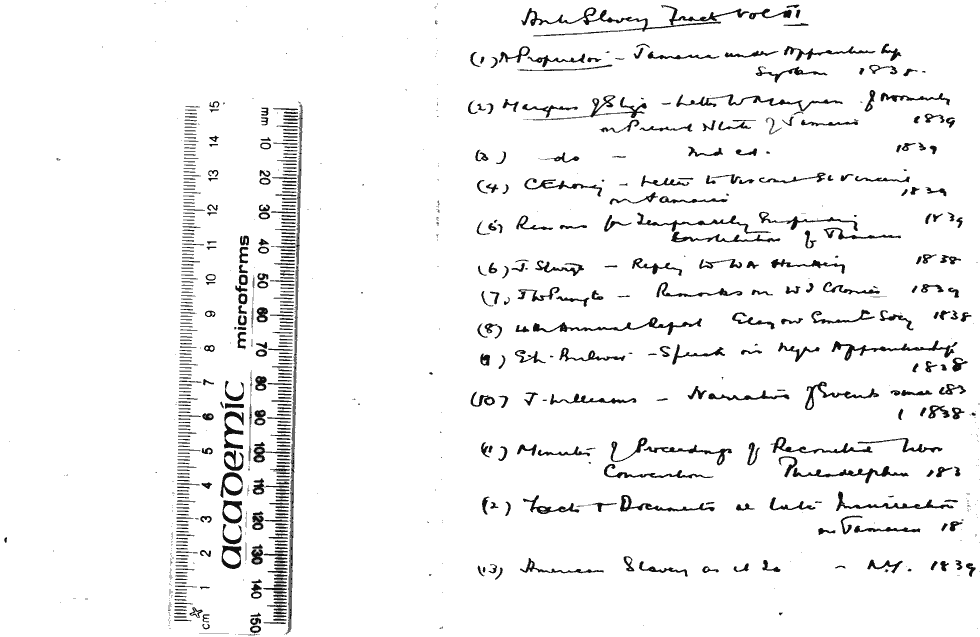 Anti Slavery Tracts Vol III
(1) A Proprietor - Jamaica under Apprenticeship
System 1838.
(2) Marquess of Sligo - Letter to Marquess of Normanby
on Present State of Jamaica 1839
(3) do - 2nd ed. 1839
(4) - Letter to Viscount St Vincent
on Jamaica 1839
(5) Reasons for Temporarily Suspending
Constitution of Jamaica 1839
(6) J. Sturge - Reply to W A Hankey 1838
(7) - Remarks on W I Colonies 1839
(8) 4th Annual Report Glasgow Emanct Socy 1838
(9) E. L. Bulwer - Speech on Negro Apprenticeship
1838
(10) J. Williams - Narrative of Events since 183
1838.
(11) Minutes of Proceedings of Requited Labor
Convention Philadelphia 183
(12) Facts & Documents re Late Insurrection
in Jamaica 18
(13) American Slavery as it is - N.Y. 1839
mm 10 20 30 40 50 60 70 80 90 100 110 120 130 140 150
academic microforms
cm 1 2 3 4 5 6 7 8 9 10 11 12 13 14 15